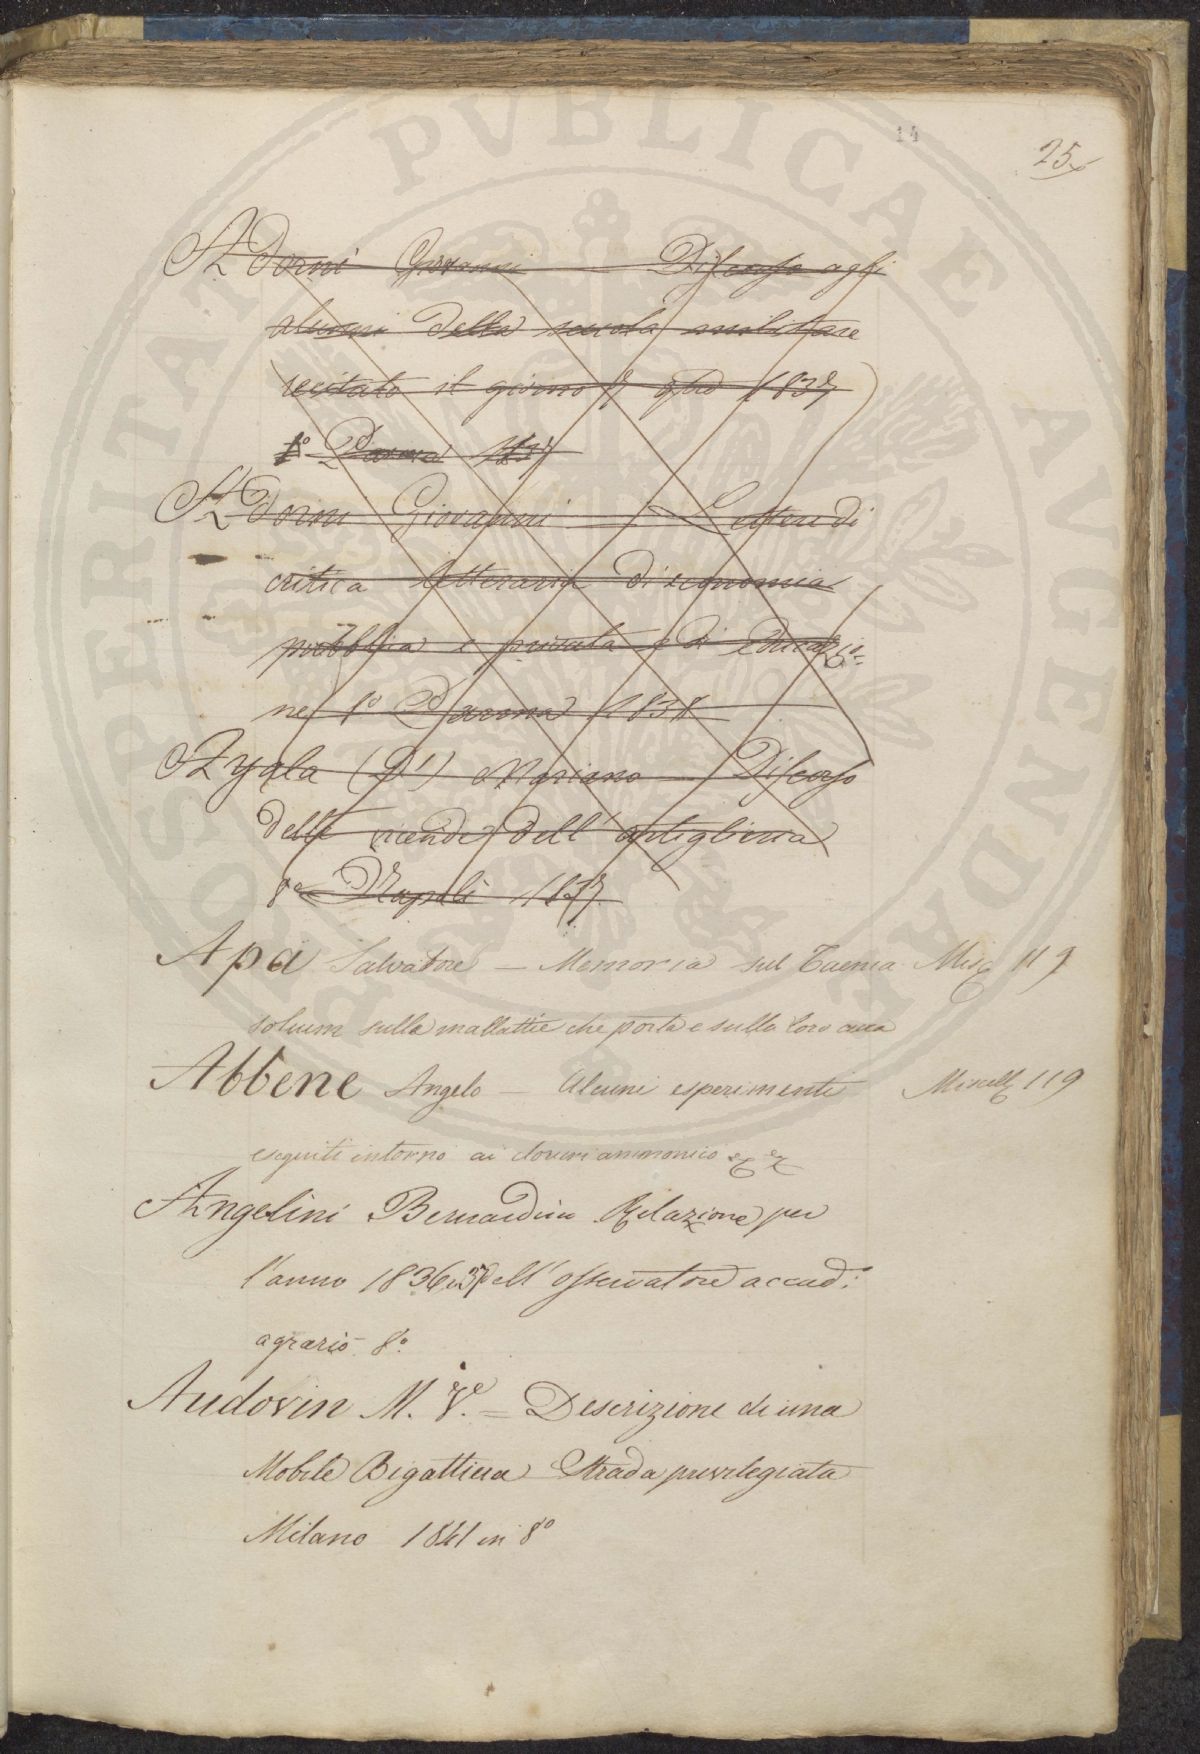 14
25
Adorni Giovanni — Discorso agli
alunni della scuola militare
recitato il giorno 7 1837
8º Parma 1837
Adorni Giovanni — Lettere di
critica letteraria di economia
pubblica e privata e di educazio-
ne 8º Parma 1838
Ayala (D') Mariano — Discorso
delle vicende dell'artiglieria
8º Napoli 1837
Apa Salvatore — Memoria sul Taenia Misc 119
solium sulla mallattie che porta e sulla loro cura
Abbene Angelo — Alcuni esperimenti Miscell 119
eseguiti intorno ai cloruri ammonico
Angelini Bernardino Relazione per
l'anno 1836 e 37 dell'osservatore accad:
agrario 8º.
Audovin M. V.e = Descrizione di una
Mobile Bigattiera Strada privilegiata
Milano 1841 in 8º
PERITAT PVBLICAE AVGENDAE